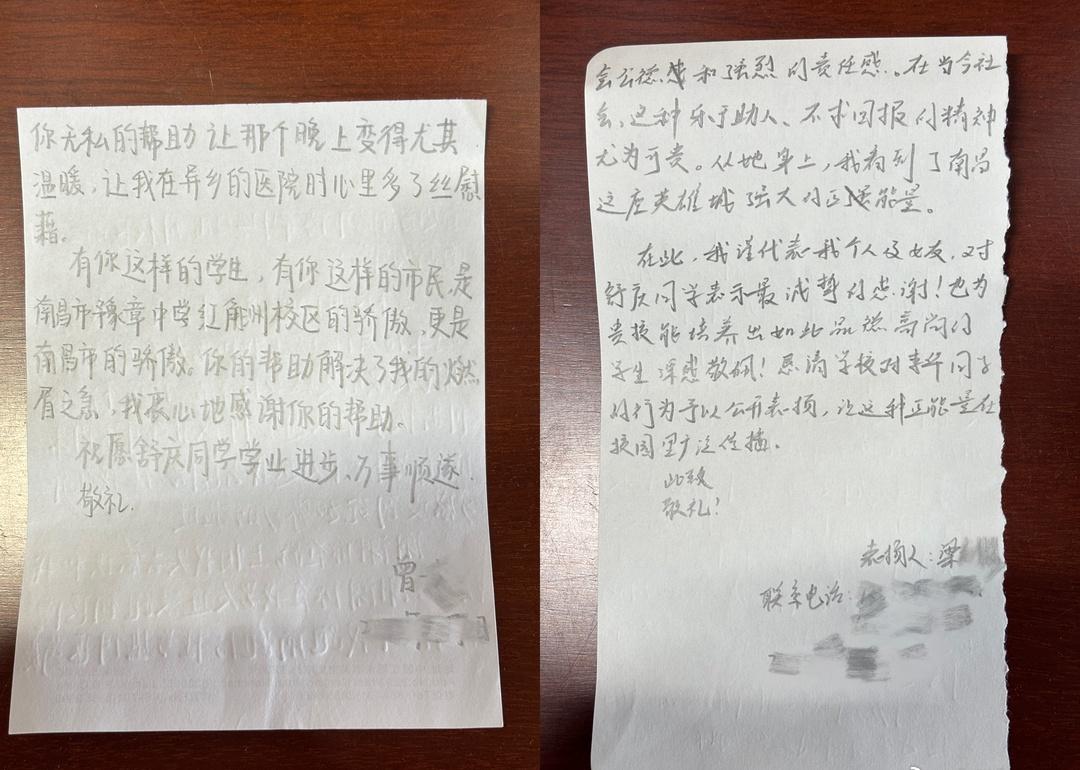 你无私的帮助让那个晚上变得尤其
温暖，让我在异乡的医院时心里多了丝慰
藉。
有你这样的学生，有你这样的市民，是
南昌市豫章中学红角洲校区的骄傲，更是
南昌市的骄傲。你的帮助解决了我的燃
眉之急，我衷心地感谢你的帮助。
祝愿舒庆同学学业进步、万事顺遂
敬礼.
曾
日
会公德和强烈的责任感。在当今社
会，这种乐于助人、不求回报的精神
尤为可贵。从她身上，我看到了南昌
这座英雄城强大的正能量。
在此，我谨代表我个人及女友，对
舒庆同学表示最诚挚的感谢！也为
贵校能培养出如此品德高尚的
学生深感敬佩！恳请学校对事件同学
的行为予以公开表扬，让这种正能量在
校园里广泛传播。
此致
敬礼！
表扬人：梁
联系电话：